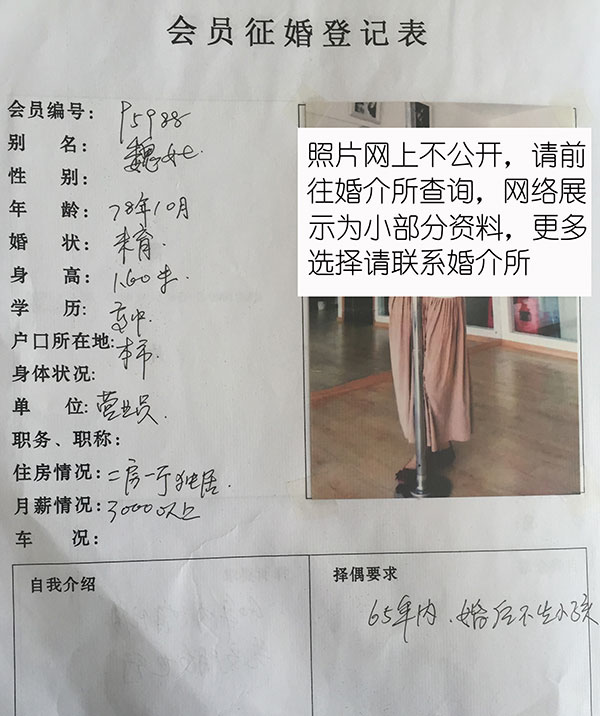 会员征婚登记表
会员编号: P5988
别 名: 魏女士
性 别:
年 龄: 78年10月
婚 状: 未育.
身 高: 1.60米
学 历: 高中.
户口所在地: 本市.
身体状况:
单 位: 营业员.
职务、职称:
住房情况: 二房一厅独居.
月薪情况: 3000以上
车 况:
照片网上不公开，请前
往婚介所查询，网络展
示为小部分资料，更多
选择请联系婚介所
自我介绍
择偶要求
65年内、婚后不生小孩